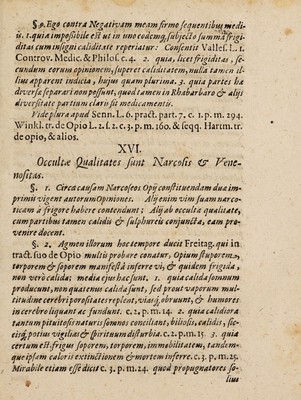 § 9. Ego contra Negativam meam firmo sequentibus mediis
is. 1. quia impossibile est ut in uno eodemq; subjecto summa frigiditas
cum insigni caliditate reperiatur: Consentit Vallef. L. 1.
Controv. Medic. & Philof. c. 4. 2. quia, licet frigiditas, secundum
eorum opinionem, superet caliditatem, nulla tamen illius
apparent indicia, hujus quam plurima. 3. quia partes hæ
diversæ separari non possunt, quod tamen in Rhabarbaro & alijs
diversitate partium claris fit medicamentis.
Vide plura apud Senn. L. 6. pract. part. 7. c. 1. p. m. 294.
Winkl. tr. de Opio L. 2. s. 2. c. 3. p. m. 160. & seqq. Hartm. tr.
de opio, & alios.
XVI.
Occultæ Qualitates sunt Narcosis & Venenositas.
§. 1. Circa causam Narcoseos Opij constituendam dua imprimis
vigent autorum Opiniones. Alij enim vim suam narcoticam
à frigore habere contendunt; Alij ab occulta qualitate,
cum partibus tamen calidis & sulphureis conjuncta, eam provenire
docent.
§. 2. Agmen illorum hoc tempore ducit Freitag. qui in
tract. suo de Opio multi probare conatur, Opium stuporem,
torporem & soporem manifestà inferre vi, & quidem frigida,
non verò calida; media ejus hæc sunt. 1. quia calida somnum
producunt, non quatenus calida sunt, sed prout vaporum multitudine
cerebri porositates replent, viasq; obruunt, & humores
in cerebro liquant ac fundunt. c. 2. p. m. 14. 2. quia calidiora
tantum pituitosis naturis somnos conciliant, biliosis, calidis, siccisq;
potius vigilias & spirituum disturbia. c. 2. p. m. 15. 3. quia
certum est frigus soporem, torporem, immobilitatem, tandemque
ipsam caloris extinctionem & mortem inferre. c. 3. p. m. 25.
Mirabile etiam esse dicit c. 3. p. m. 24. quod propugnatores so-
lius